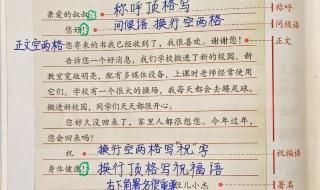 亲爱的叔叔： 称呼顶格写 称呼
您好！ 问候语 换行空两格 问候语
正文空两格 您寄来的书我已经收到了，我很喜欢。谢谢您！ 正文
告诉您一个好消息，我们学校搬进了新的校园。新
教室宽敞明亮，配有多媒体设备，上课时老师经常使用
它们。学校有一个很大的操场，我每天都会去踢足球。
搬进新校园，同学们天天都很开心。
您好久没回来了，家里人都很想您。今年过年，
您会回来吗？
祝 换行空两格写"祝"字 祝福语
身体健康！ 换行顶格写祝福语
右下角署名 儿小杰 署名